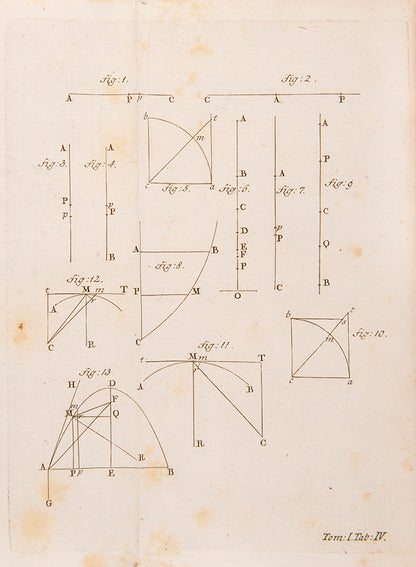 fig: 1.
fig: 2.
A P p C
C A P
fig: 3.
A
P
p
fig: 4.
A
p
P
B
b t
m
c a
fig: 5.
fig: 6.
A
B
C
D
E
F
P
O
fig: 7.
A
p
P
C
fig: 9.
A
P
C
Q
B
A B
fig: 8.
P M
C
fig: 12.
t M m T
r
A
C R
fig: 11.
t M m T
r
A B
R C
b t
s
m
c a
fig: 10.
fig: 13.
H D
F
m
M Q
R
A P p E B
G
Tom: I. Tab: IV.